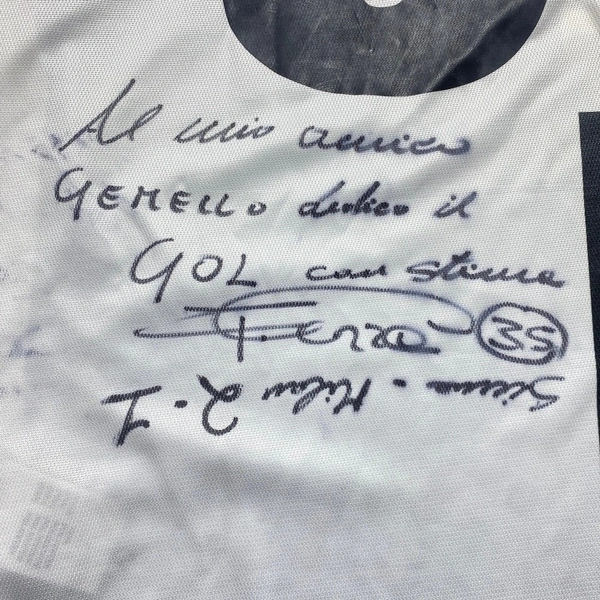 Al mio amico
GEMELLO dedico il
GOL con stima
F. Serra 35
Siena - Milan 2-1